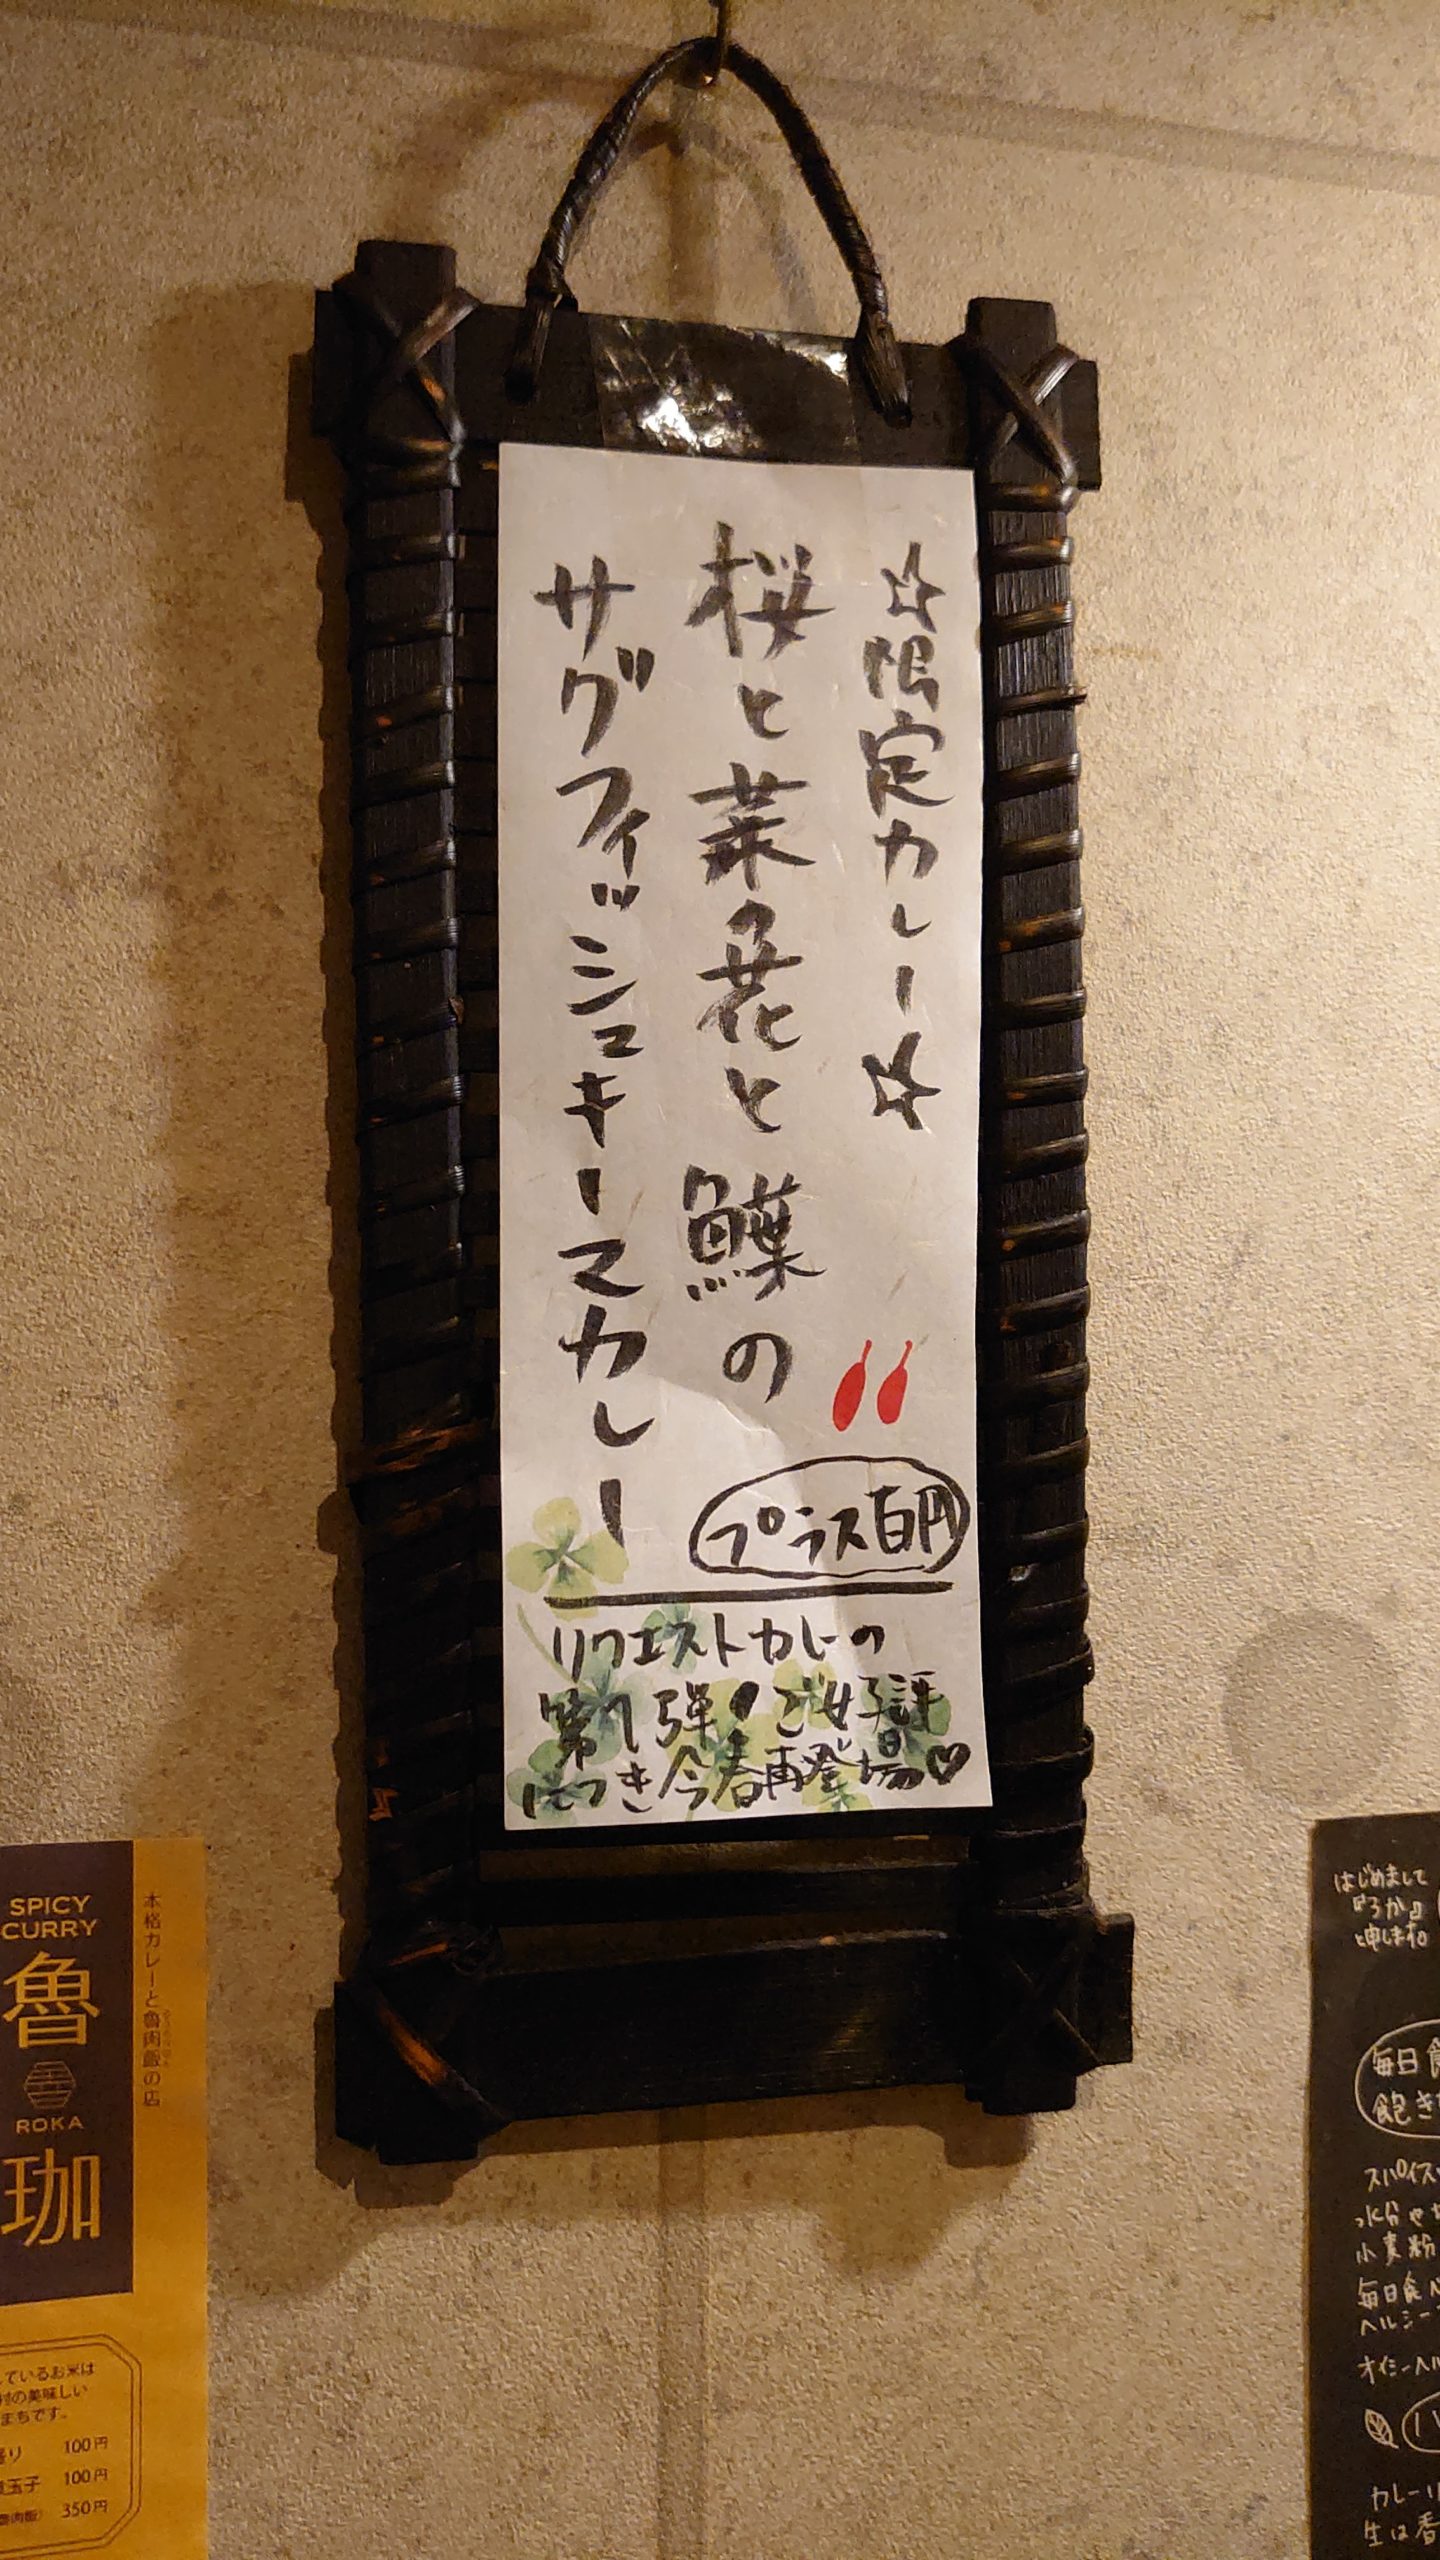 ☆限定カレー☆
桜と菜の花と鰈の
サグフィッシュキーマカレー
プラス百円
リクエストカレーの
第1弾！ご好評
につき今春再登場♡
SPICY
CURRY
魯
ROKA
珈
本格カレーと魯肉飯の店
ているお米は
村の美味しい
まちです。
盛り 100円
玉子 100円
350円
はじめまして
『ろか』
と申します。
毎日
飽き
スパイス
水分
小麦粉
毎日食べ
ヘルシー
カレー
生は香